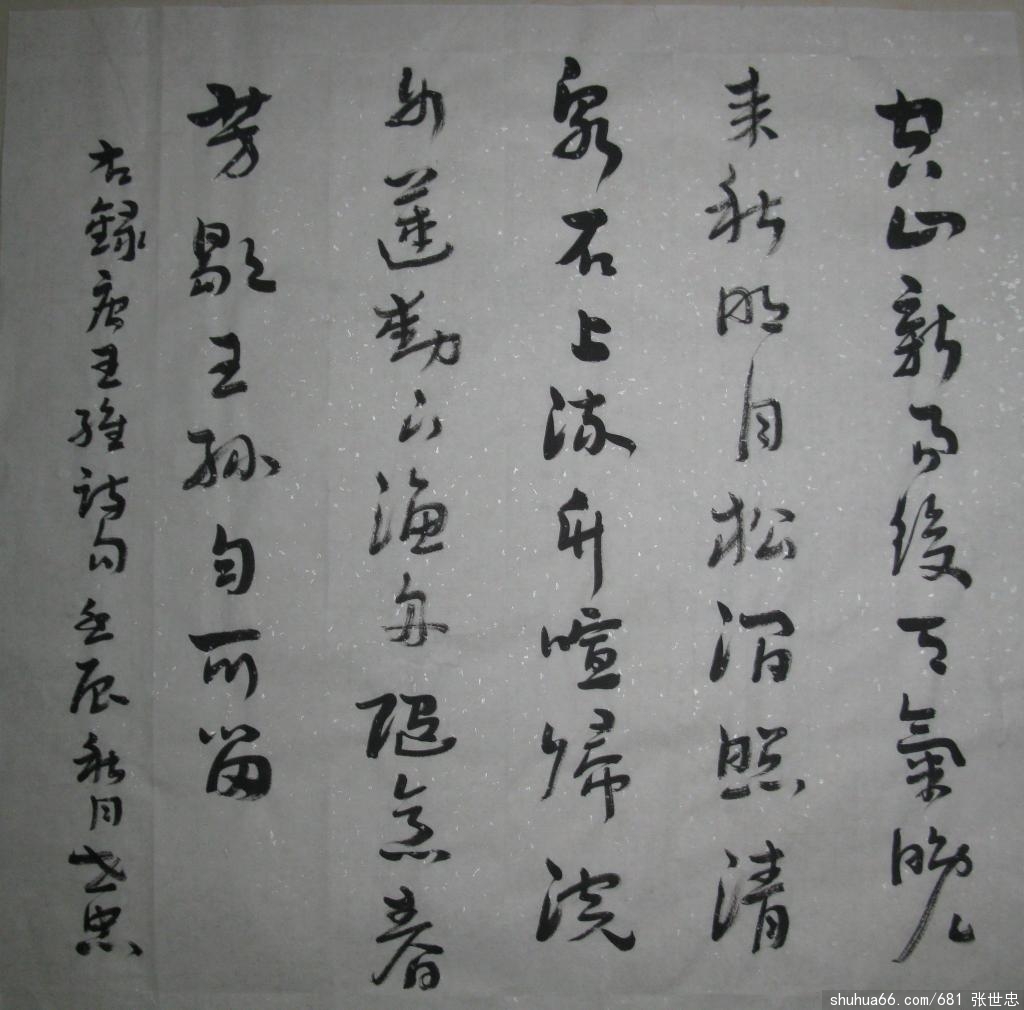 空山新雨後天氣晚
来秋明月松間照清
泉石上流竹喧歸浣
女蓮動下漁舟随意春
芳歇王孫自可留
右録唐王維詩句壬辰秋月世忠
shuhua66.com/681 张世忠